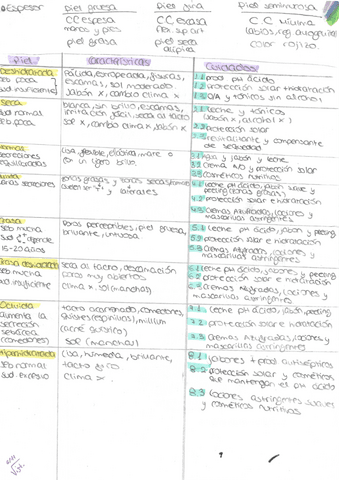 Espesor
piel gruesa
CC espesa
marca y pies
piel grasa
piel fina
CC escasa
flex sup art
piel seca
alípica
piel semimucosa
CC mínima
labios, reg anogenital
color rojizo
Piel
Características
Cuidados
Deshidratada
seb poca
sud insuficiente
Pálida, estropeada, fisuras,
escamas, sol moderado
Jabón x, cambio clima x
1.1 prod ph ácido
1.2 protección solar + hidratación
1.3 O/A y tónicos sin alcohol
Seca
sud normal
seb poca
blanca, sin brillo, escamas,
irritación fácil, seca al tacto
sol x, cambio clima x Jabón x
2.1 leche y tónicos
(jabón x, alcohol x)
2.2 protección solar
y compensante
de sequedad
Normal
secreciones
equilibradas
lisa, flexible, elástica, mate o
con un ligero brillo
3.1 agua y jabón y leche
3.2 crema A/O y protección solar
3.3 cosméticos nutritivos
Mixta
varias secreciones
zonas grasas y zonas secas
laterales
4.1 leche ph ácido, jabón suave y
peeling (zonas grasas)
4.2 protección solar e hidratación
4.3 cremas hidratadas, lociones y
mascarillas astringentes
Grasa
seb mucha
sud depende
15-20 años
Poros perceptibles, piel gruesa,
brillante, untuosa
5.1 leche ph ácido, jabón y peeling
5.2 protección solar e hidratación
5.3 cremas hidratadas, lociones y
mascarillas astringentes
Grasa deshidratada
seb mucha
sud insuficiente
seca al tacto, descamación
poros muy abiertos
clima x. sol (mancha)
6.1 leche ph ácido, jabones y peeling
6.2 protección solar e hidratación
6.3 cremas hidratadas, lociones y
mascarillas astringentes
Ocluida
aumenta la
secreción
sebácea
(comedones)
tacto acartonado, comedones,
quistes (espinillas), millium
(acné quístico)
sol (mancha)
7.1 leche ph ácido, jabón, peeling
7.2 protección solar e hidratación
7.3 cremas hidratadas, lociones y
mascarillas astringentes
Hiperhidratada
seb normal
sud excesivo
lisa, húmeda, brillante,
tacto frío
clima x
8.1 jabones + prod antisépticos
8.2 protección solar y cosméticos
que mantengan el ph ácido
8.3 lociones astringentes suaves
y cosméticos nutritivos